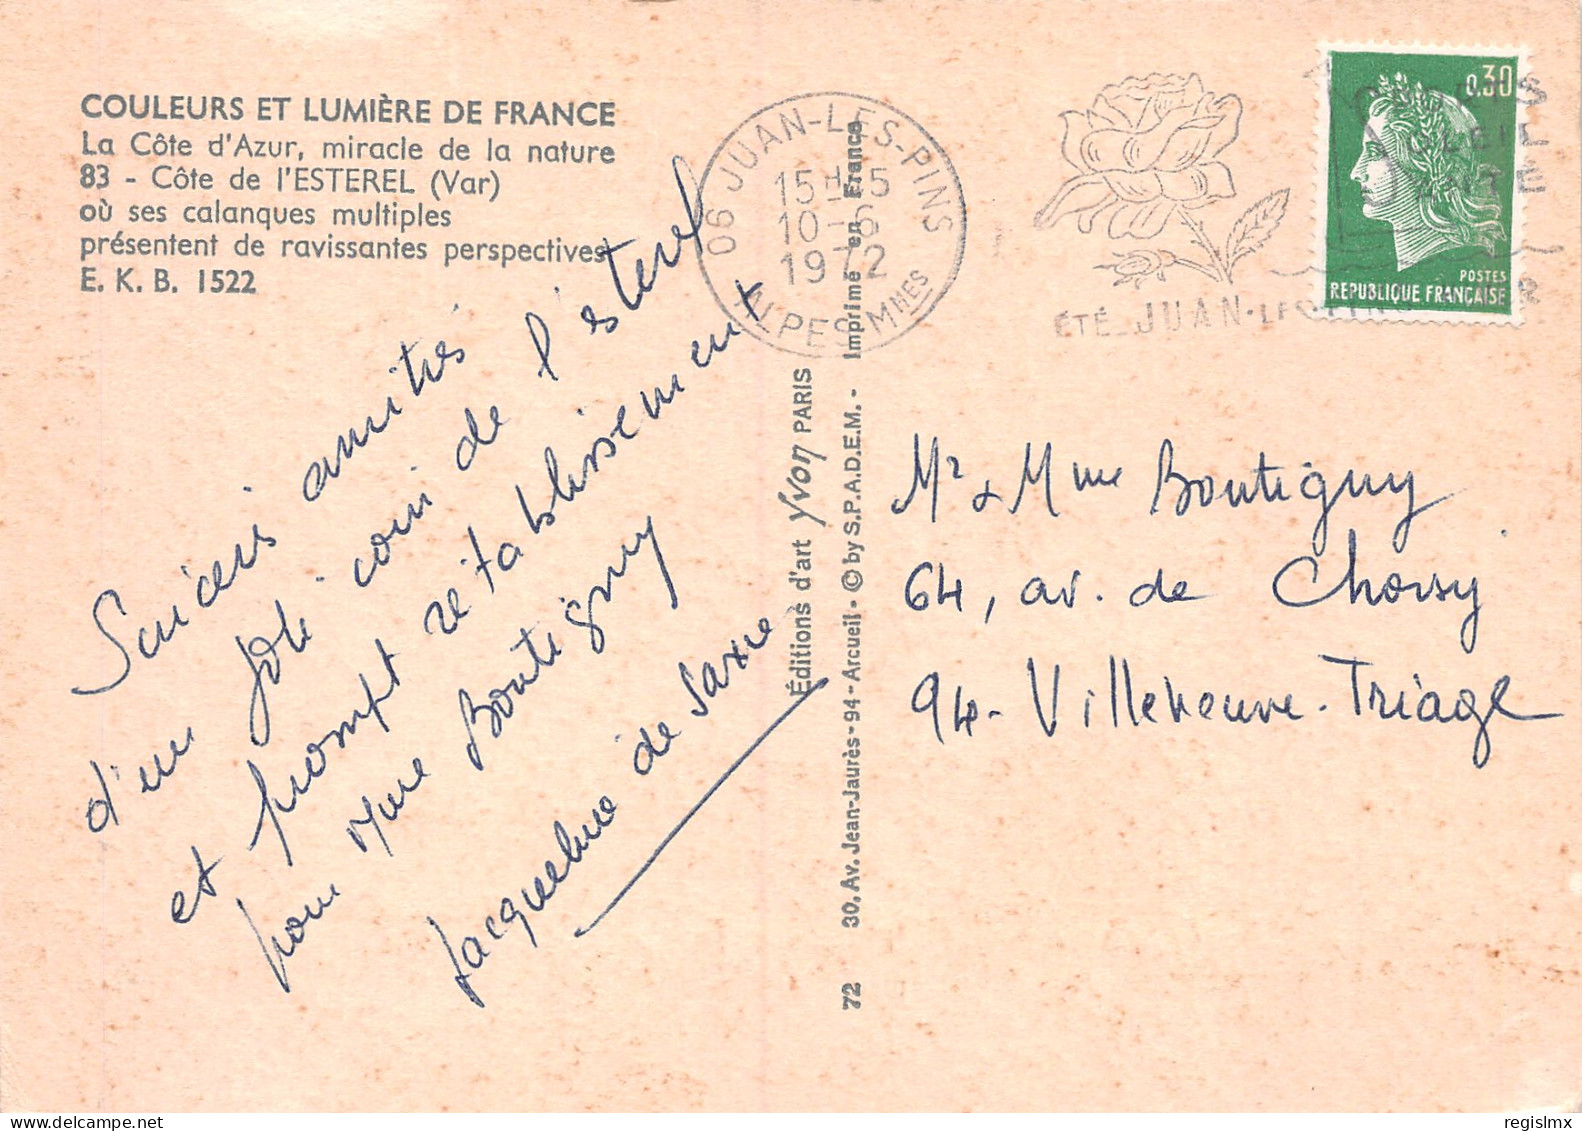 COULEURS ET LUMIÈRE DE FRANCE
La Côte d'Azur, miracle de la nature
83 - Côte de l'ESTEREL (Var)
où ses calanques multiples
présentent de ravissantes perspectives
E. K. B. 1522
Sincères amitiés
d'un joli coin de l'esterel
et prompt rétablissement
pour Mme Boutigny
Jacqueline de Saxce
06 JUAN-LES-PINS
15H15
10-6
1972
ALPES-MMES
ÉTÉ JUAN-LES-PINS
0,30
POSTES
REPUBLIQUE FRANÇAISE
Éditions d'art yvon PARIS
72 30, Av. Jean-Jaurès - 94 - Arcueil - © by S.P.A.D.E.M. - Imprimé en France
Mr & Mme Boutigny
64, av. de Choisy
94 - Villeneuve-Triage
regislmx